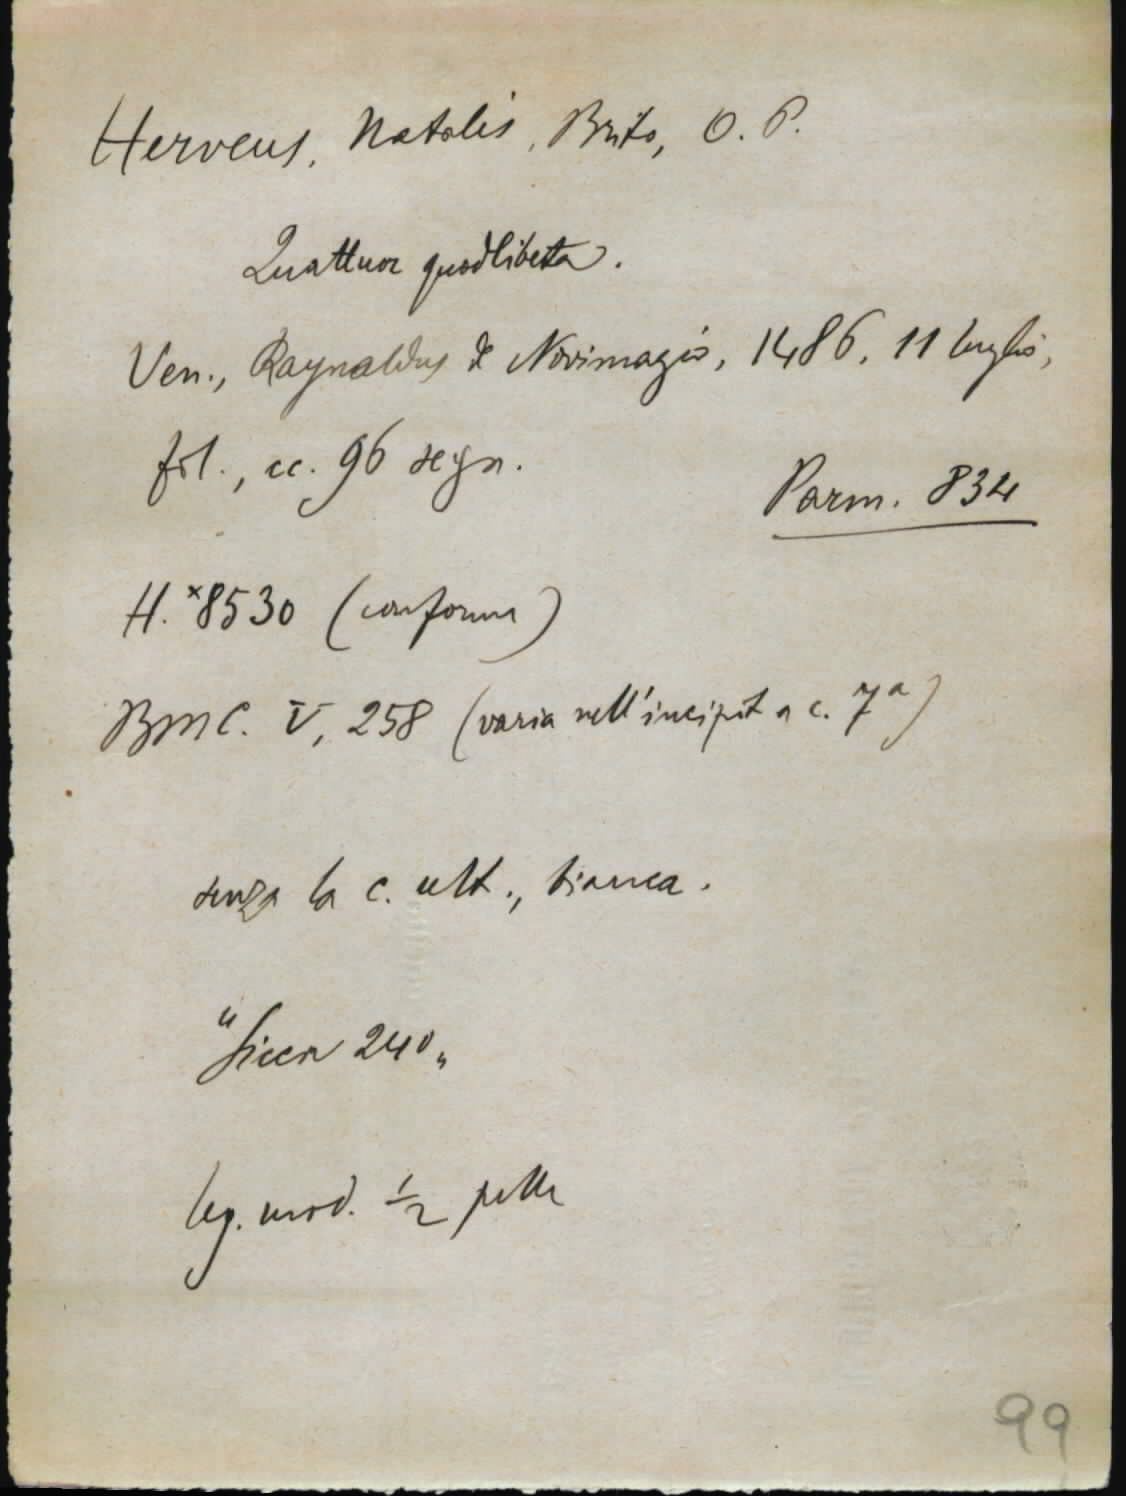 Herveus, Natalis, Brito, O. P.
Quattuor quodlibeta.
Ven., Raynaldus de Novimagio, 1486, 11 luglio,
fol., cc. 96 segn.
Parm. 834
H. *8530 (conforme)
BMC. V, 258 (varia nell'incipit a c. 7ª)
senza la c. ult., bianca.
"Sicca 240"
leg. mod. ½ pelle
99